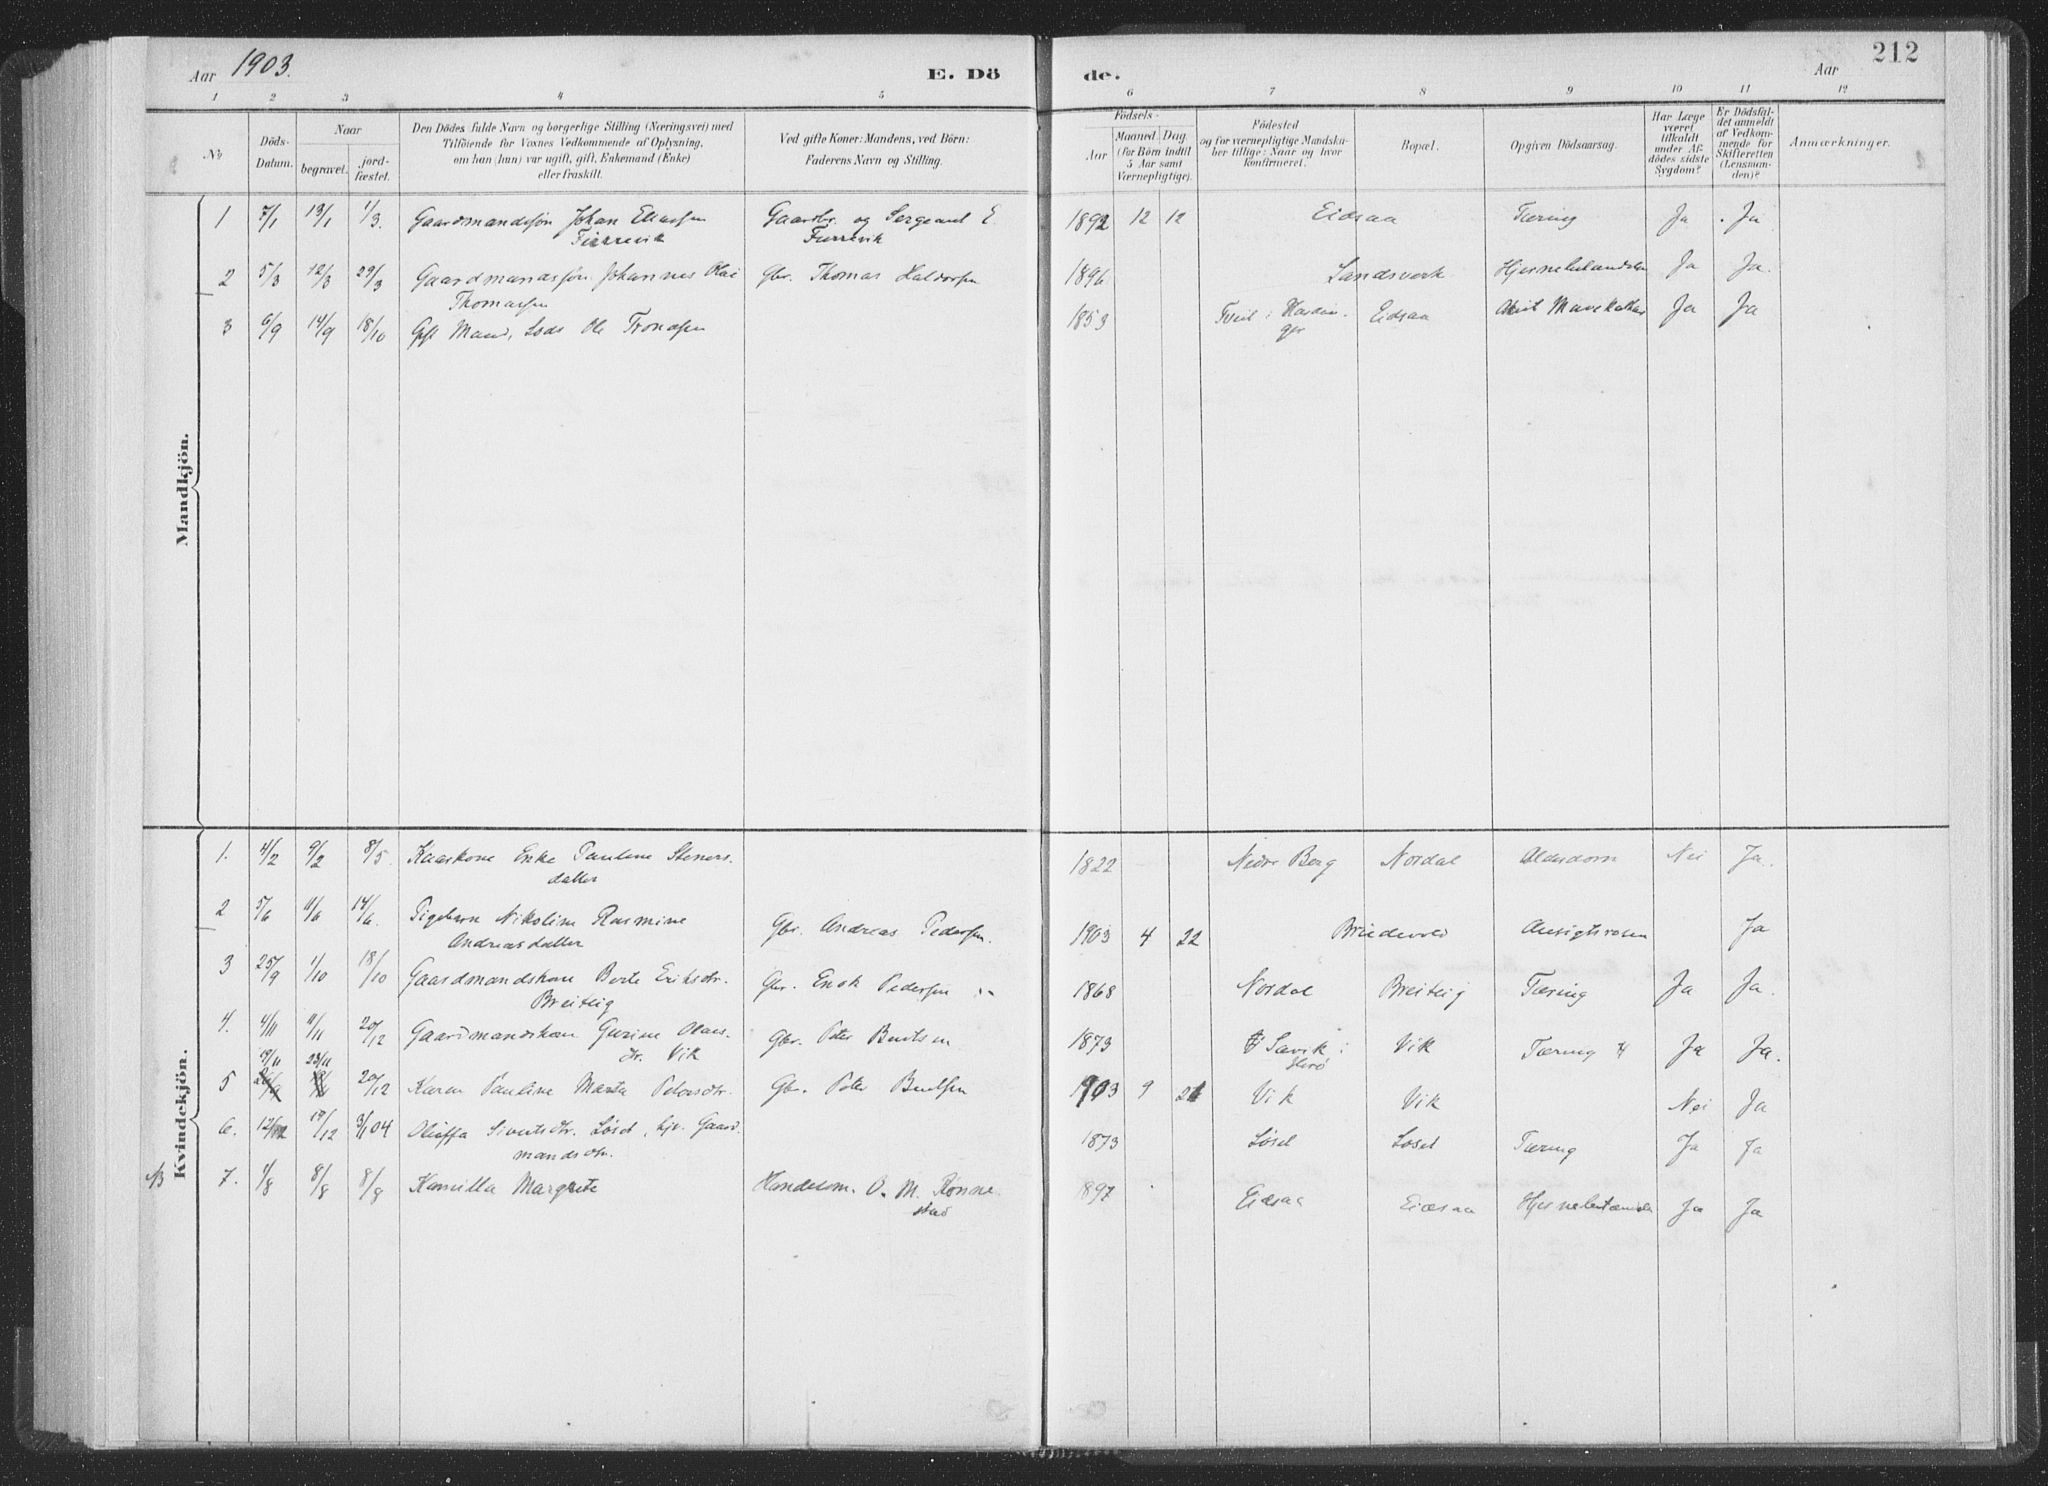 Aar 1903. E. Dö de. Aar 212
1 2 3 4 5 6 7 8 9 10 11 12
No
Döds-Datum.
Naar
begravet.
jord-fæstet.
Den Dödes fulde Navn og borgerlige Stilling (Næringsvei) med
Tilföiende for Voxnes Vedkommende af Oplysning,
om han (hun) var ugift, gift, Enkemand (Enke)
eller fraskilt.
Ved gifte Koner: Mandens, ved Börn:
Faderens Navn og Stilling.
Födsels-
Aar
Maaned. Dag.
(for Börn indtil
5 Aar samt
Værnepligtige).
Födested
og for værnepligtige Mandska-
ber tillige: Naar og hvor
konfirmeret.
Bopæl.
Opgiven Dödsaarsag.
Har Læge
været
tilkaldt
under Af-
dödes sidste
Sygdom?
Er Dödsfal-
det anmeldt
af Vedkom-
mende for
Skifteretten
(Lensman-
den)?
Anmærkninger.
Mandkjön.
1 7/1 13/1 1/3. Gaardmandssøn Johan Eliassen Gaardbr. og Sergeant E. 1892 12 12 Eidsaa Tæring Ja Ja
Furrevik Furrevik
2 5/3 12/3 29/3 Gaardmandssøn Johannes Olai Gbr. Thomas Haldorsen 1896 Landsverk Ja Ja.
Thomassen
3 6/9 14/9 18/10 Gift Mand, Lods Ole Trondsen 1853 Tveit i Hardan- Eidsaa Ja Ja
ger
Kvindekjön.
1. 4/2 9/2 8/5. Kaarkone Enke Pauline Steners- 1822 Nedre Berg Nordal Alderdom Nei Ja.
datter
2 5/6 11/6 14/6. Pigebarn Nikoline Rasmine Gbr. Andreas Pedersen. 1903 4 22 Ansigtsrosen Ja
Andreasdatter
3 25/9 1/10 18/10 Gaardmandskone Berte Eriksdtr. Gbr. Enok Pedersen 1868 Nordal Breiteig Tæring Ja Ja.
Breiteig
4. 4/11 11/11 20/12 Gaardmandskone Gurine Olaus- Gbr. Peter 1873 Sævik i Vik Tæring Ja Ja.
dtr. Vik Herø
19/11 23/11
5 20/12 Karen Pauline Marta Petersdtr. Gbr. Peter 1903 9 21 Vik Vik Nei Ja
6. 12/12 19/12 3/1 04 Oluffa Sivertsdtr. Løset, Gaard- 1873 Løset Løset Tæring Ja Ja
mandsdtr.
NB 7. 1/8 8/8 8/8 Kamilla Margrete Handelsm. O. M. Rønne- 1897 Eidsaa Eidsaa Ja Ja
stad